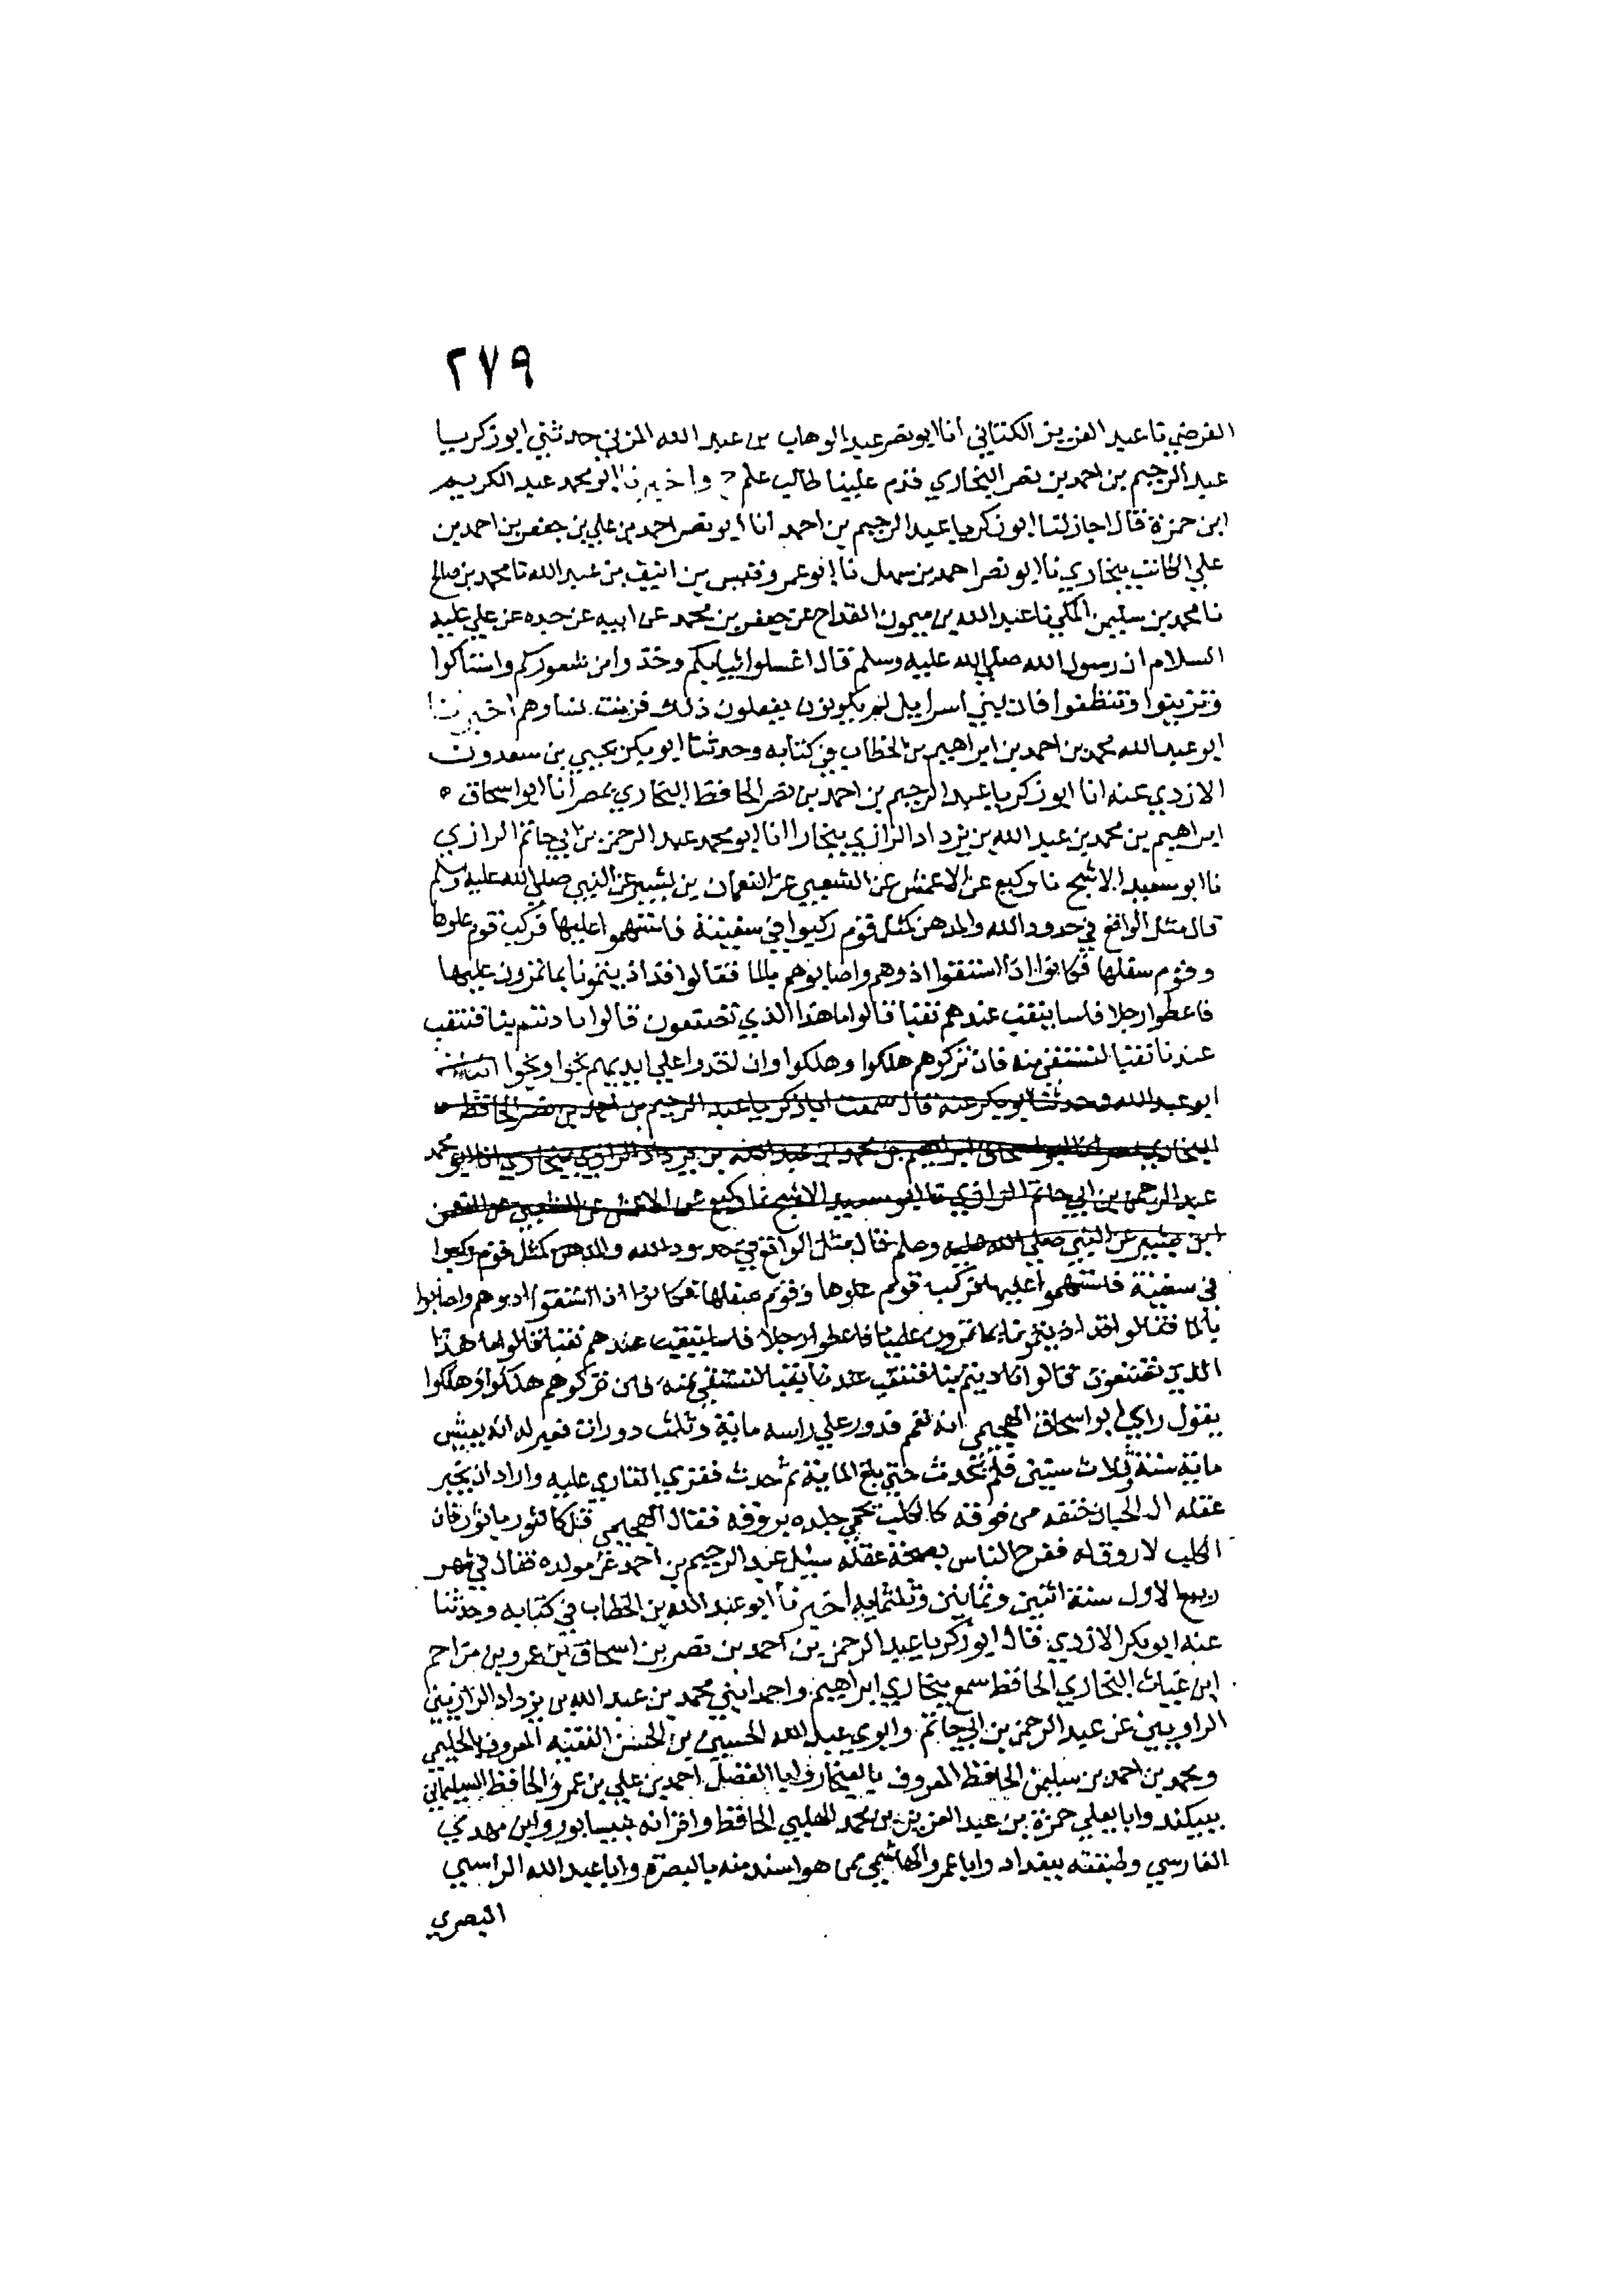 ٢٧٩
الفرضي نا عبد العزيز الكتاني انا ابو نصر عبد الوهاب بن عبد الله المزني حدثني ابو زكريا
عبد الرحيم بن احمد بن نصر البخاري قدم علينا طالب علم ح واخبرنا ابو محمد عبد الكريم
ابن حمزة قال اجاز لنا ابو زكريا عبد الرحيم بن احمد انا ابو نصر احمد بن علي بن جعفر بن احمد بن
علي الكاتب ببخاري نا ابو نصر احمد بن سهل نا ابو عمرو قيس بن انيف بن عبد الله نا محمد بن صالح
نا محمد بن سليمن المكي نا عبد الله بن ميمون القداح عن جعفر بن محمد عن ابيه عن جده عن علي عليه
السلام ان رسول الله صلي الله عليه وسلم قال اغسلوا ثيابكم وخذوا من شعوركم واستاكوا
وتزينوا وتنظفوا فان بني اسراييل لم يكونون يفعلون ذلك فزنت نساوهم اخبرنا
ابو عبد الله محمد بن احمد بن ابراهيم بن الخطاب في كتابه وحدثنا ابو بكر يحيي بن سعدون
الازدي عنه انا ابو زكريا عبد الرحيم بن احمد بن نصر الحافظ البخاري بمصر انا ابو اسحاق ه
ابراهيم بن محمد بن عبد الله بن يزداد الرازي ببخارا انا ابو محمد عبد الرحمن بن ابي حاتم الرازي
نا ابو سعيد الاشج نا وكيع عن الاعمش عن الشعبي عن النعمان بن بشير عن النبي صلي الله عليه وسلم
قال مثل الواقع في حدود الله والمدهن كمثل قوم ركبوا في سفينة فاستهموا عليها فركب قوم علوها
وقوم سفلها فكانوا اذا استقوا اذوهم واصابوهم بالما فقالوا قد اذيتمونا بما تمرون علينا
فاعطوا رجلا فاسا ينقب عندهم نقبا قالوا ما هذا الذي تصنعون قالوا تاذيتم بنا فننقب
عندنا نقبا لنستقي منه فان تركوهم هلكوا وهلكوا وان اخذوا علي ايديهم نجوا ونجوا انبانا
ابو عبد الله وحدثنا ابو بكر عنه قال سمعت ابا زكريا عبد الرحيم بن احمد بن نصر الحافظ ه
البخاري بمصر انا ابو اسحاق ابراهيم بن محمد بن عبد الله بن يزداد الرازي ببخاري انا ابو محمد
عبد الرحمن بن ابي حاتم الرازي نا ابو سعيد الاشج نا وكيع عن الاعمش عن الشعبي عن النعمن
ابن بشير عن النبي صلي الله عليه وسلم قال مثل الواقع في حدود الله والمدهن كمثل قوم ركبوا
في سفينة فاستهموا عليها فركب قوم علوها وقوم سفلها فكانوا اذا استقوا اذوهم واصابوا
بالما فقالوا قد اذيتمونا بما تمرون علينا فاعطوا رجلا فاسا ينقب عندهم نقبا فقالوا ما هذا
الذي تصنعون قالوا تاذيتم بنا فننقب عندنا نقبا لنستقي منه فان تركوهم هلكوا وهلكوا
يقول راي ابو اسحاق الهجيمي انه تعمم فدور علي راسه ماية وثلث دورات فعبر له انه يعيش
ماية سنة وثلاث سنين فلم يحدث حتي بلغ الماية ثم حدث فقري القاري عليه واراد ان يخبر
عقله ان الجبان حتفه من فوقه كالكلب يحمي جلده بروقه فقال الهجيمي قل كالثور فان
الكلب لا روق له ففرح الناس بصحة عقله سئل عبد الرحيم بن احمد عن مولده فقال في شهر
ربيع الاول سنة اثنين وثمانين وثلثمايه اخبرنا ابو عبد الله بن الخطاب في كتابه وحدثنا
عنه ابو بكر الازدي قال ابو زكريا عبد الرحمن بن احمد بن نصر بن اسحاق بن عمرو بن مزاحم
ابن غياث البخاري الحافظ سمع ببخاري ابراهيم واحمد ابني محمد بن عبد الله بن يزداد الرازيين
الراويين عن عبد الرحمن بن ابي حاتم وابوي عبد الله الحسين بن الحسن الفقيه المعروف بالحليمي
ومحمد بن احمد بن سليمن الحافظ المعروف بالغنجار وابا الفضل احمد بن علي بن عمرو الحافظ السليماني
ببيكند وابا يعلي حمزة بن عبد العزيز بن محمد المهلبي الحافظ واقرانه بنيسابور وابن مهدي
الفارسي وطبقته ببغداد وابا عمر الهاشمي من هو اسند منه بالبصرة وابا عبد الله الراسبي
البصري